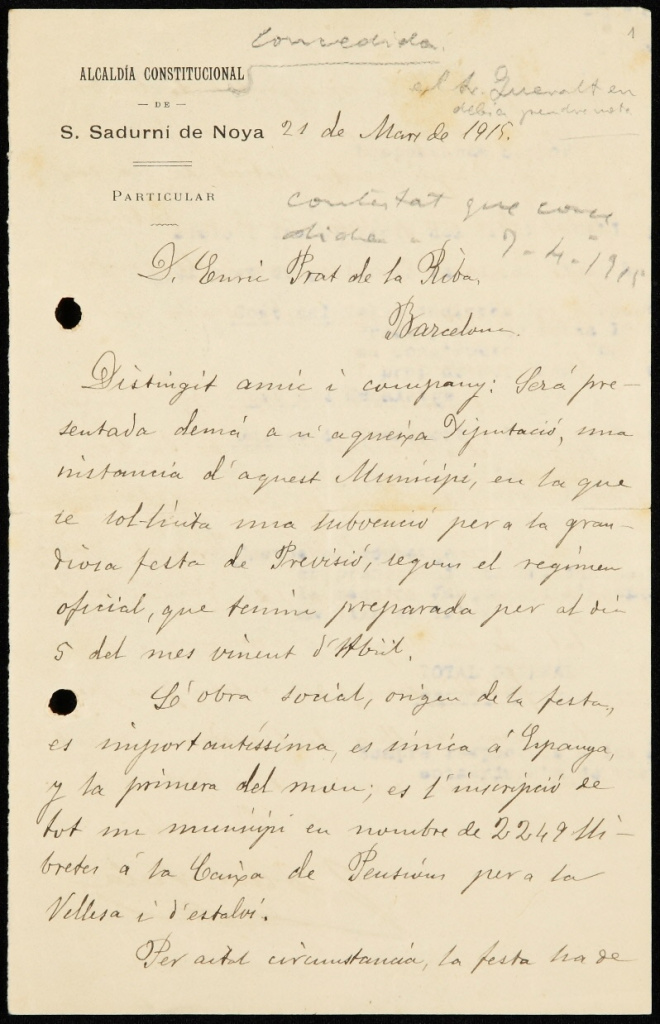 Concedida
1
ALCALDÍA CONSTITUCIONAL
— DE —
S. SADURNÍ DE NOYA
el Sr. Queralt en
debia pendre nota
21 de Mars de 1915.
PARTICULAR
contestat que conce
dida 7-4-1915
D. Enric Prat de la Riba,
Barcelona.
Distingit amic i company: Será pre-
sentada demá a n'aqueixa Diputació, una
instancia d'aquest Municipi, en la que
se sol-licita una subvenció per a la gran-
diosa festa de Previsió, segons el régimen
oficial, que tenim preparada per al dia
5 del mes vinent d'Abril.
L'obra social, origen de la festa,
es importantíssima, es única á Espanya,
y la primera del mon; es l'inscripció de
tot un municipi en nombre de 2249 lli-
bretes á la Caixa de Pensions per a la
Vellesa i d'estalvi.
Per aital circumstancia, la festa ha de